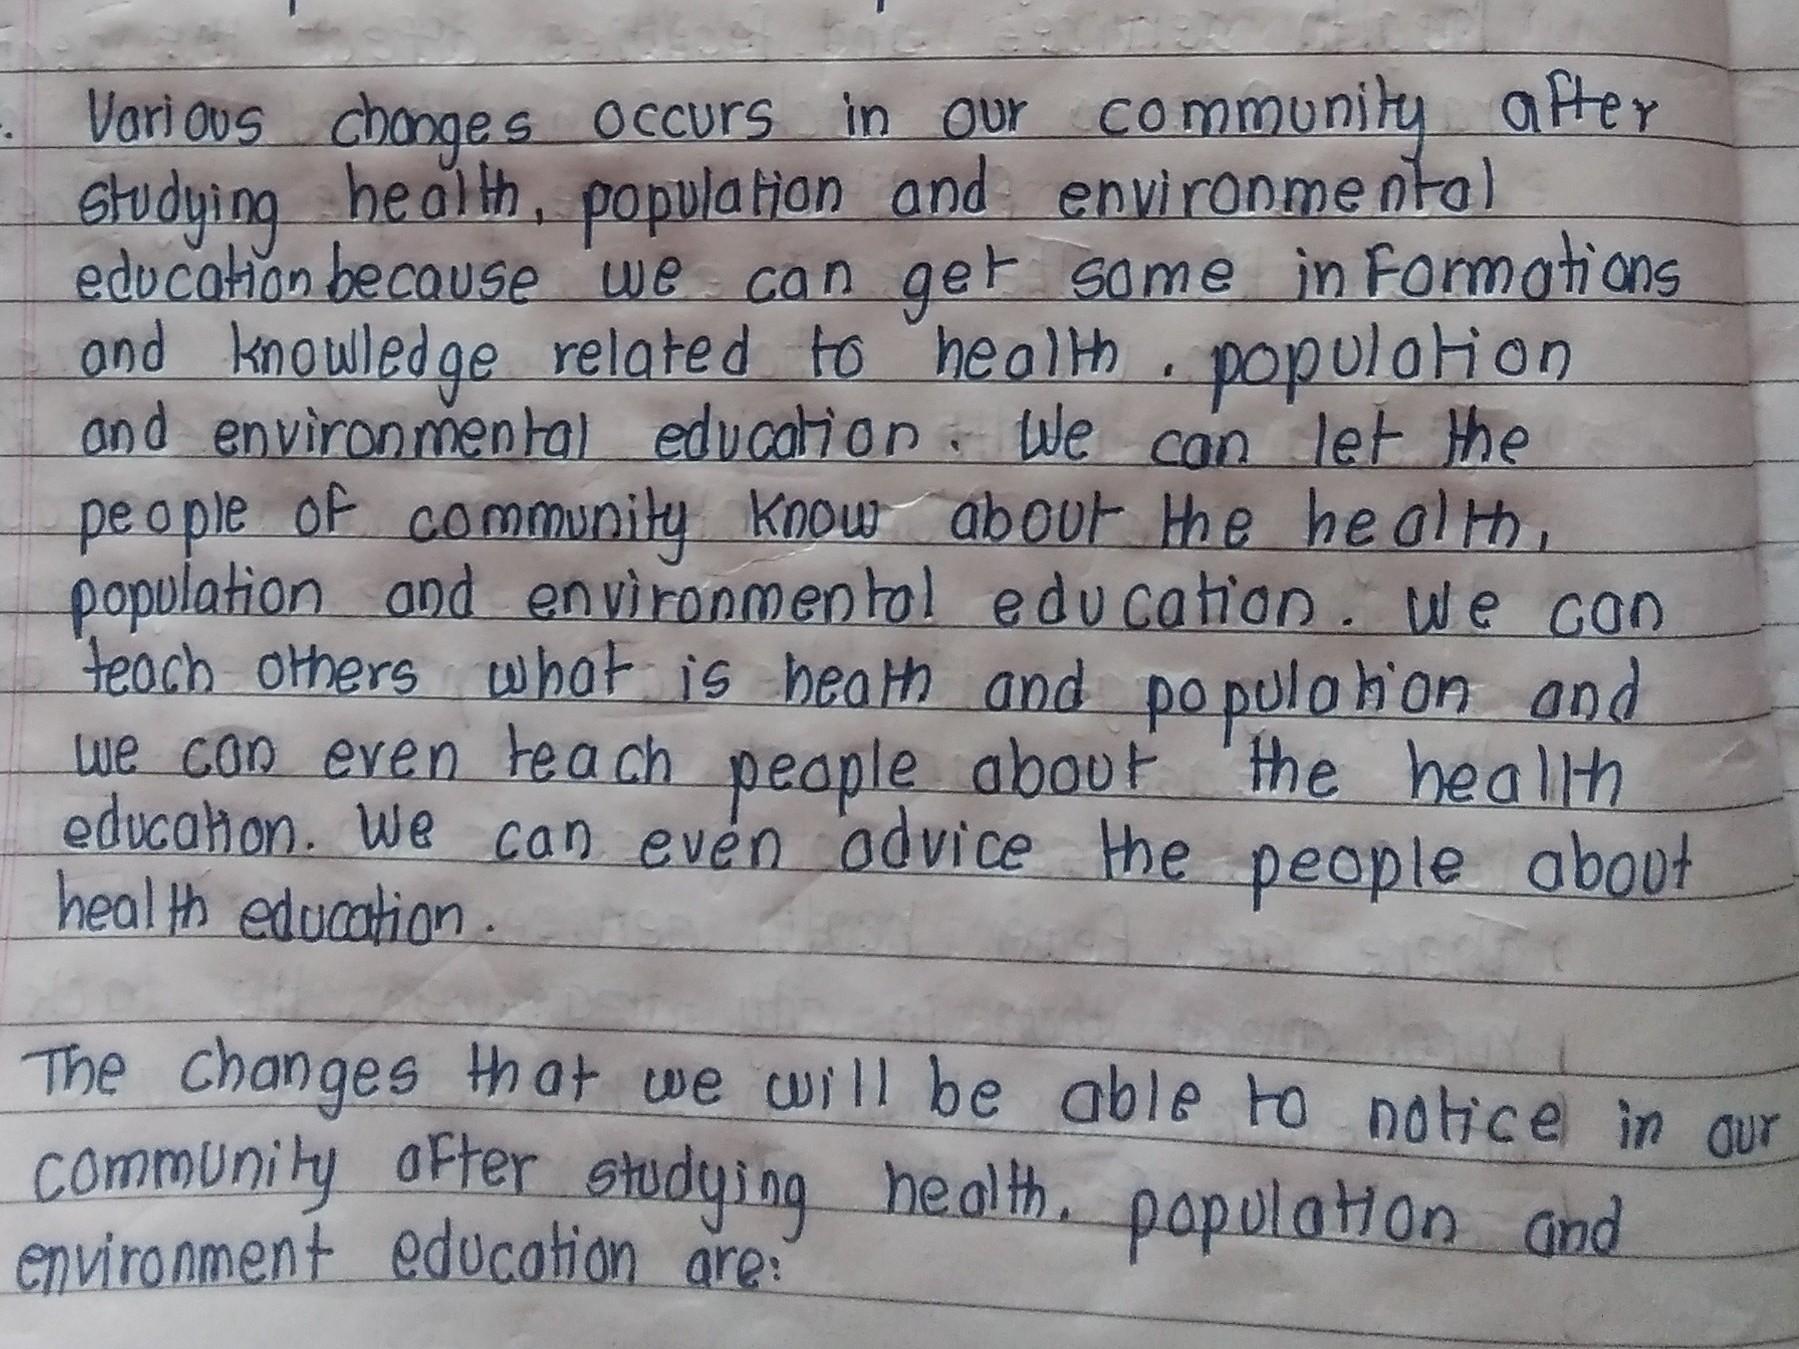 Various changes occurs in our community after
studying health, population and environmental
education because we can get some informations
and knowledge related to health, population
and environmental education. We can let the
people of community know about the health,
population and environmental education. We can
teach others what is heath and population and
we can even teach people about the health
education. We can even advice the people about
health education.
The changes that we will be able to notice in our
community after studying health, population and
environment education are: